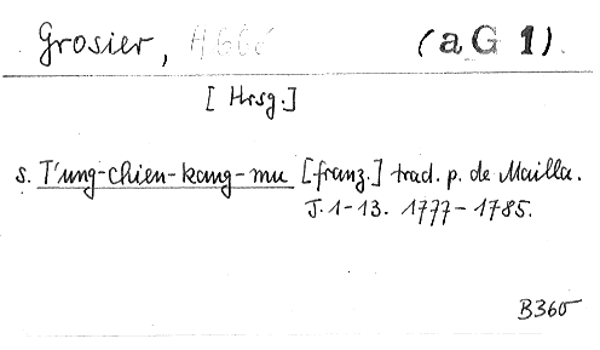 Grosier, Abbé (a G 1).
[Hrsg.]
s. T'ung-chien-kang-mu [franz.] trad. p. de Mailla.
T. 1-13. 1777-1785.
B360